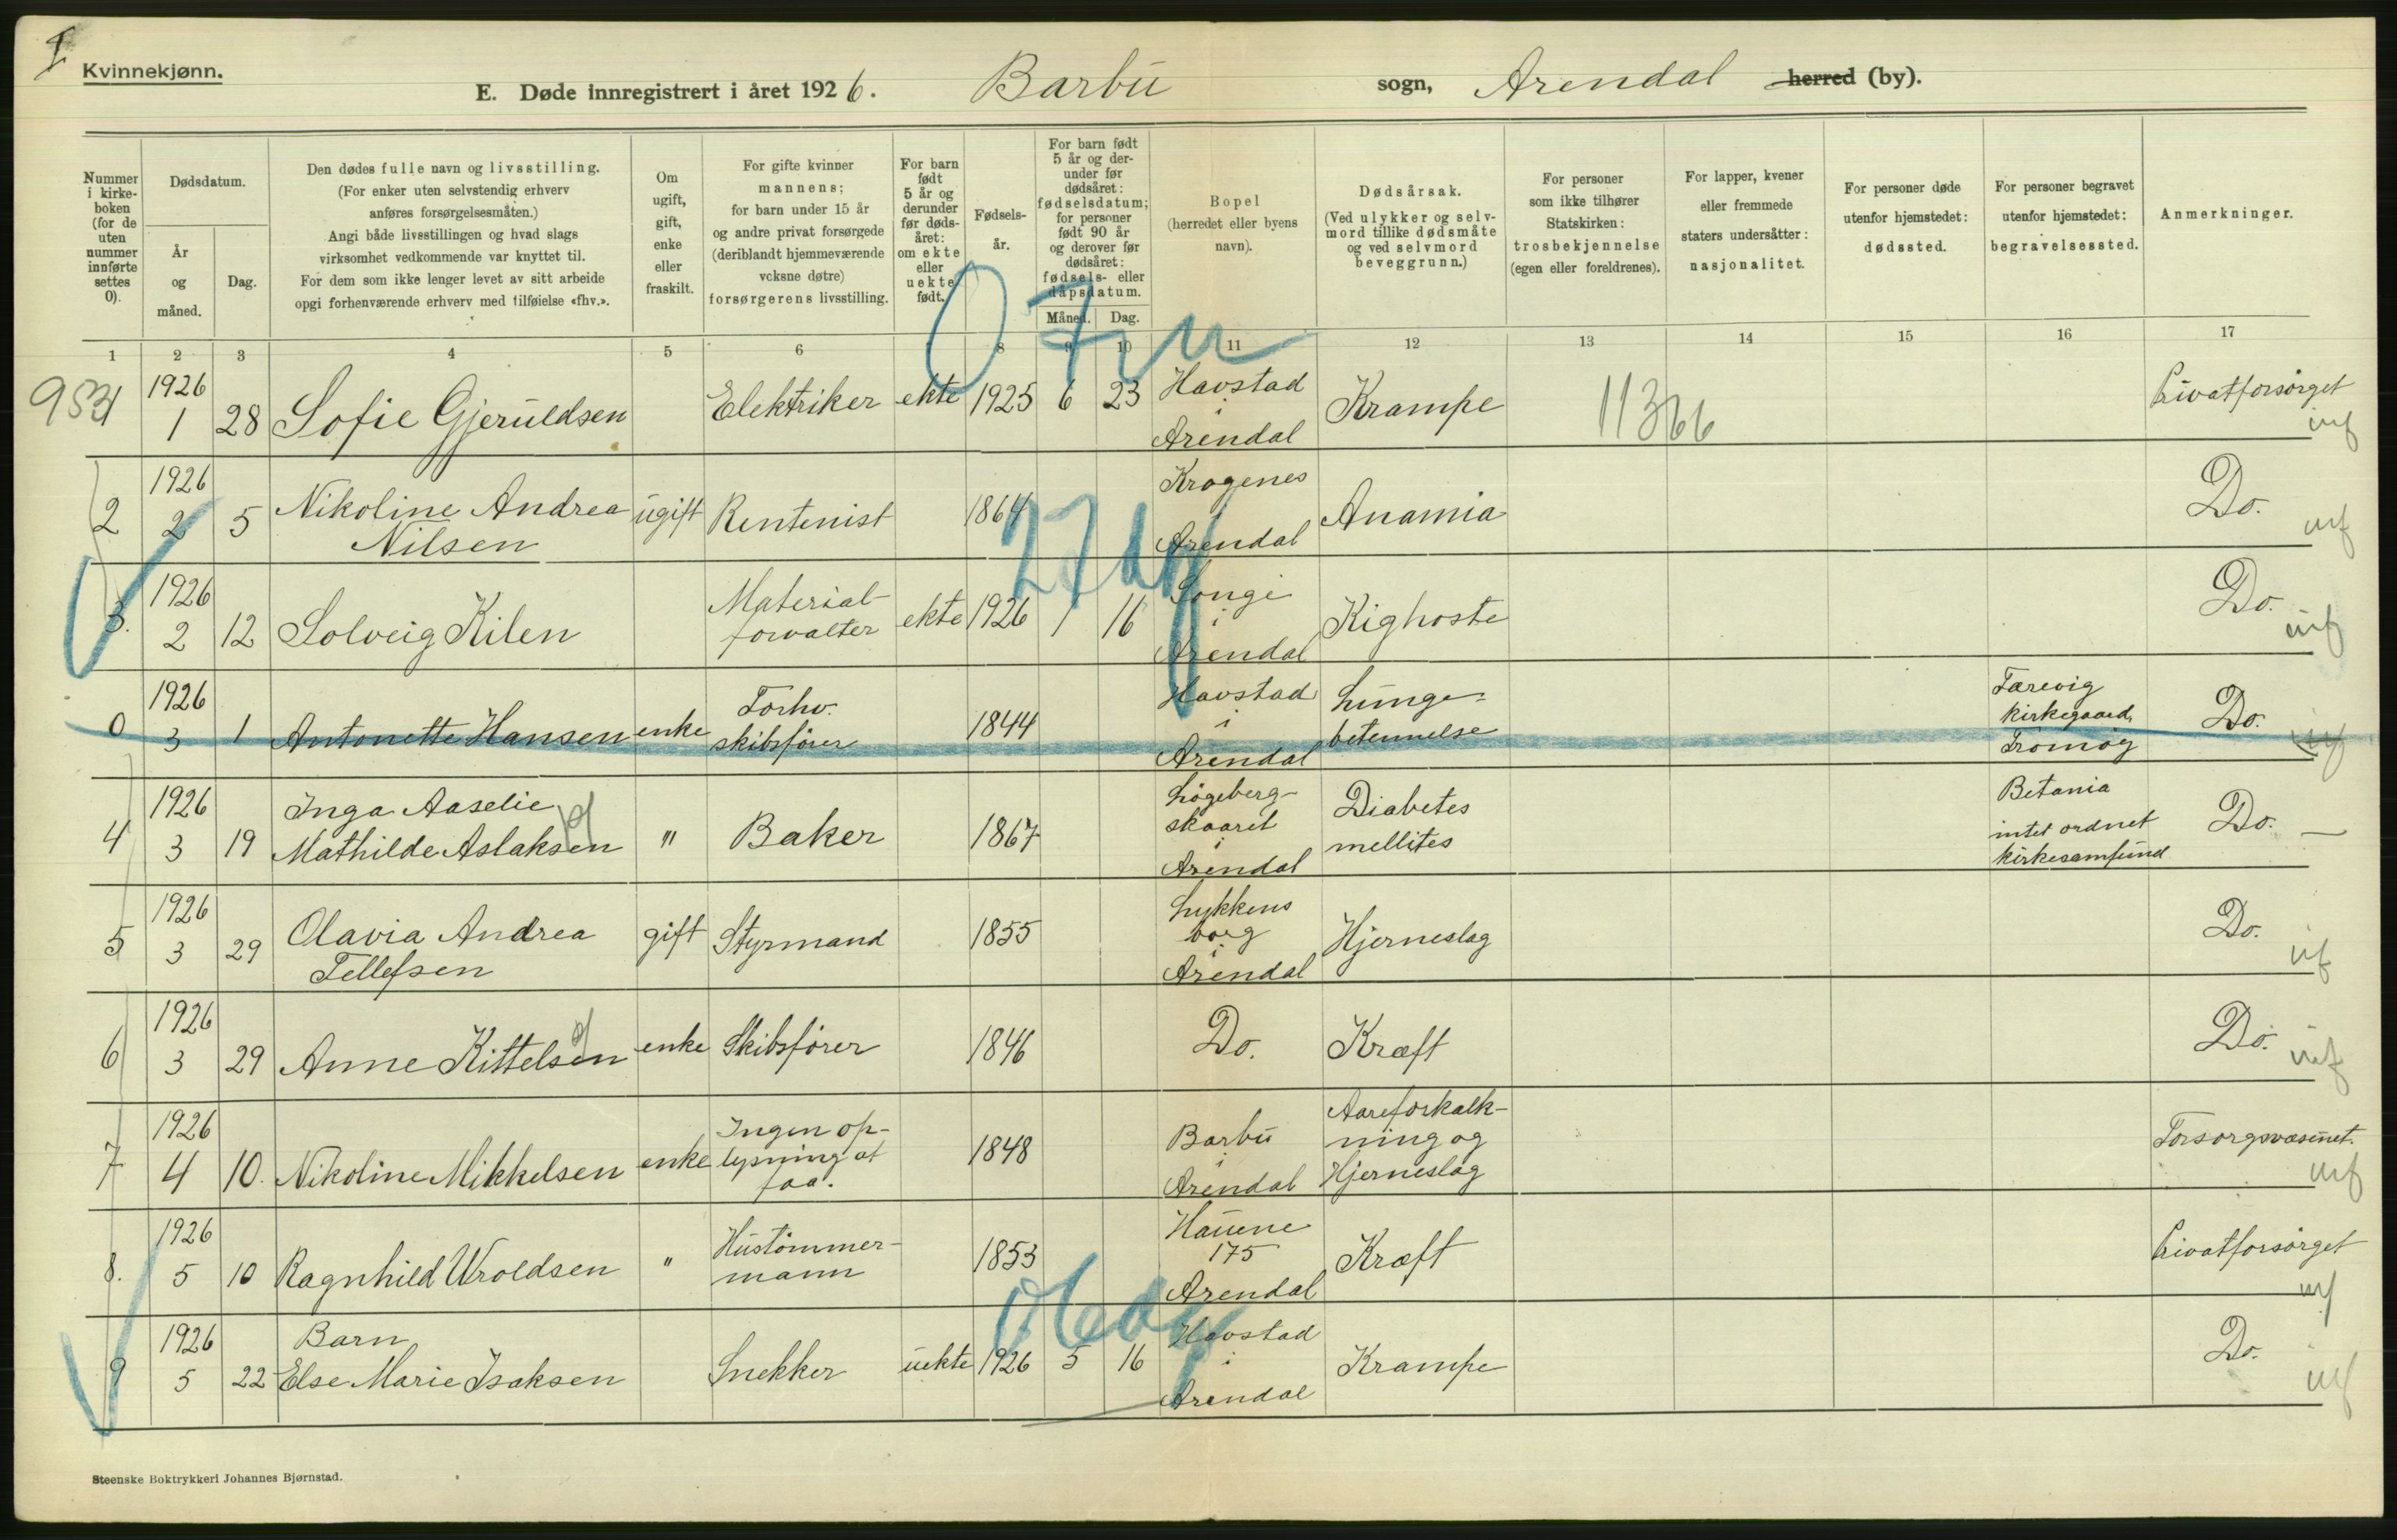 I
Kvinnekjønn.
E. Døde innregistrert i året 1926. Barbu sogn, Arendal herred (by).
Nummer i kirkeboken (for de uten nummer innførte settes 0).
Dødsdatum.
År og måned.
Dag.
Den dødes fulle navn og livsstilling.
(For enker uten selvstendig erhverv
anføres forsørgelsesmåten.)
Angi både livsstillingen og hvad slags
virksomhet vedkommende var knyttet til.
For dem som ikke lenger levet av sitt arbeide
opgi forhenværende erhverv med tilføielse «fhv.».
Om ugift, gift, enke eller fraskilt.
For gifte kvinner
mannens;
for barn under 15 år
og andre privat forsørgede
(deriblandt hjemmeværende
vcksne døtre)
forsørgerens livsstilling.
For barn født 5 år og derunder før dødsåret: om ekte eller uekte født.
Fødselsår.
For barn født 5 år og derunder før dødsåret: fødselsdatum; for personer født 90 år og derover før dødsåret: fødsels- eller dåpsdatum.
Måned. Dag.
Bopel
(herredet eller byens
navn).
Dødsårsak.
(Ved ulykker og selvmord tillike dødsmåte og ved selvmord beveggrunn.)
For personer
som ikke tilhører
Statskirken:
trosbekjennelse
(egen eller foreldrenes).
For lapper, kvener
eller fremmede
staters undersåtter:
nasjonalitet.
For personer døde
utenfor hjemstedet:
dødssted.
For personer begravet
utenfor hjemstedet:
begravelsessted.
Anmerkninger.
1 2 3 4 5 6 8 9 10 11 12 13 14 15 16 17
1 1926 1 28 Sofie Gjeruldsen Elektriker ekte 1925 6 23 Havstad i Arendal Krampe 11366 Privatforsørget
2 1926 2 5 Nikoline Andrea Nilsen ugift Rentenist 1864 Krogenes i Arendal Anamia Do.
3. 1926 2 12 Solveig Kilen Materialforvalter ekte 1926 1 16 Songe i Arendal Kighoste Do.
0 1926 3 1 Antonette Hansen enke Forhv. skibsfører 1844 Havstad i Arendal Lungebetennelse Færevig kirkegaard, Tromøy Do.
4 1926 3 19 Inga Aaselie Mathilde Aslaksen " Baker 1867 Løgebergskaaret i Arendal Diabetes mellites Betania intet ordnet kirkesamfund Do. —
5 1926 3 29 Olavia Andrea Tellefsen gift Styrmand 1855 Lykkens borg i Arendal Hjerneslag Do.
6 1926 3 29 Anne Kittelsen enke Skibsfører 1846 Do. Kræft Do.
7 1926 4 10. Nikoline Mikkelsen enke Ingen oplysning at faa. 1848 Barbu i Arendal Aareforkalkning og Hjerneslag Forsorgsvæsenet.
8. 1926 5 10 Ragnhild Uroldsen " Hustømmermann 1853 Hauene 175 Arendal Kræft Privatforsørget
9 1926 5 22 Barn Else Marie Isaksen Snekker uekte 1926 5 16 Havstad i Arendal Krampe Do.
Steenske Boktrykkeri Johannes Bjørnstad.